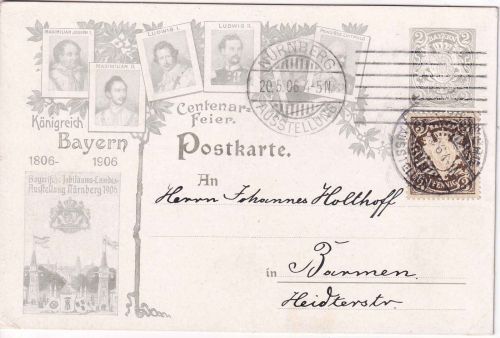 MAXIMILIAN JOSEPH I.
MAXIMILIAN II.
LUDWIG I.
LUDWIG II.
Königreich
Bayern
1806-1906
Centenar-
Feier.
Bayerische Jubiläums-Landes-
Ausstellung Nürnberg 1906
NÜRNBERG
20.5.06
AUSSTELLUNG
2 BAYERN 2
3 PFENNIG
Postkarte.
An
Herrn Johannes Holthoff
in Barmen.
Heidterstr.